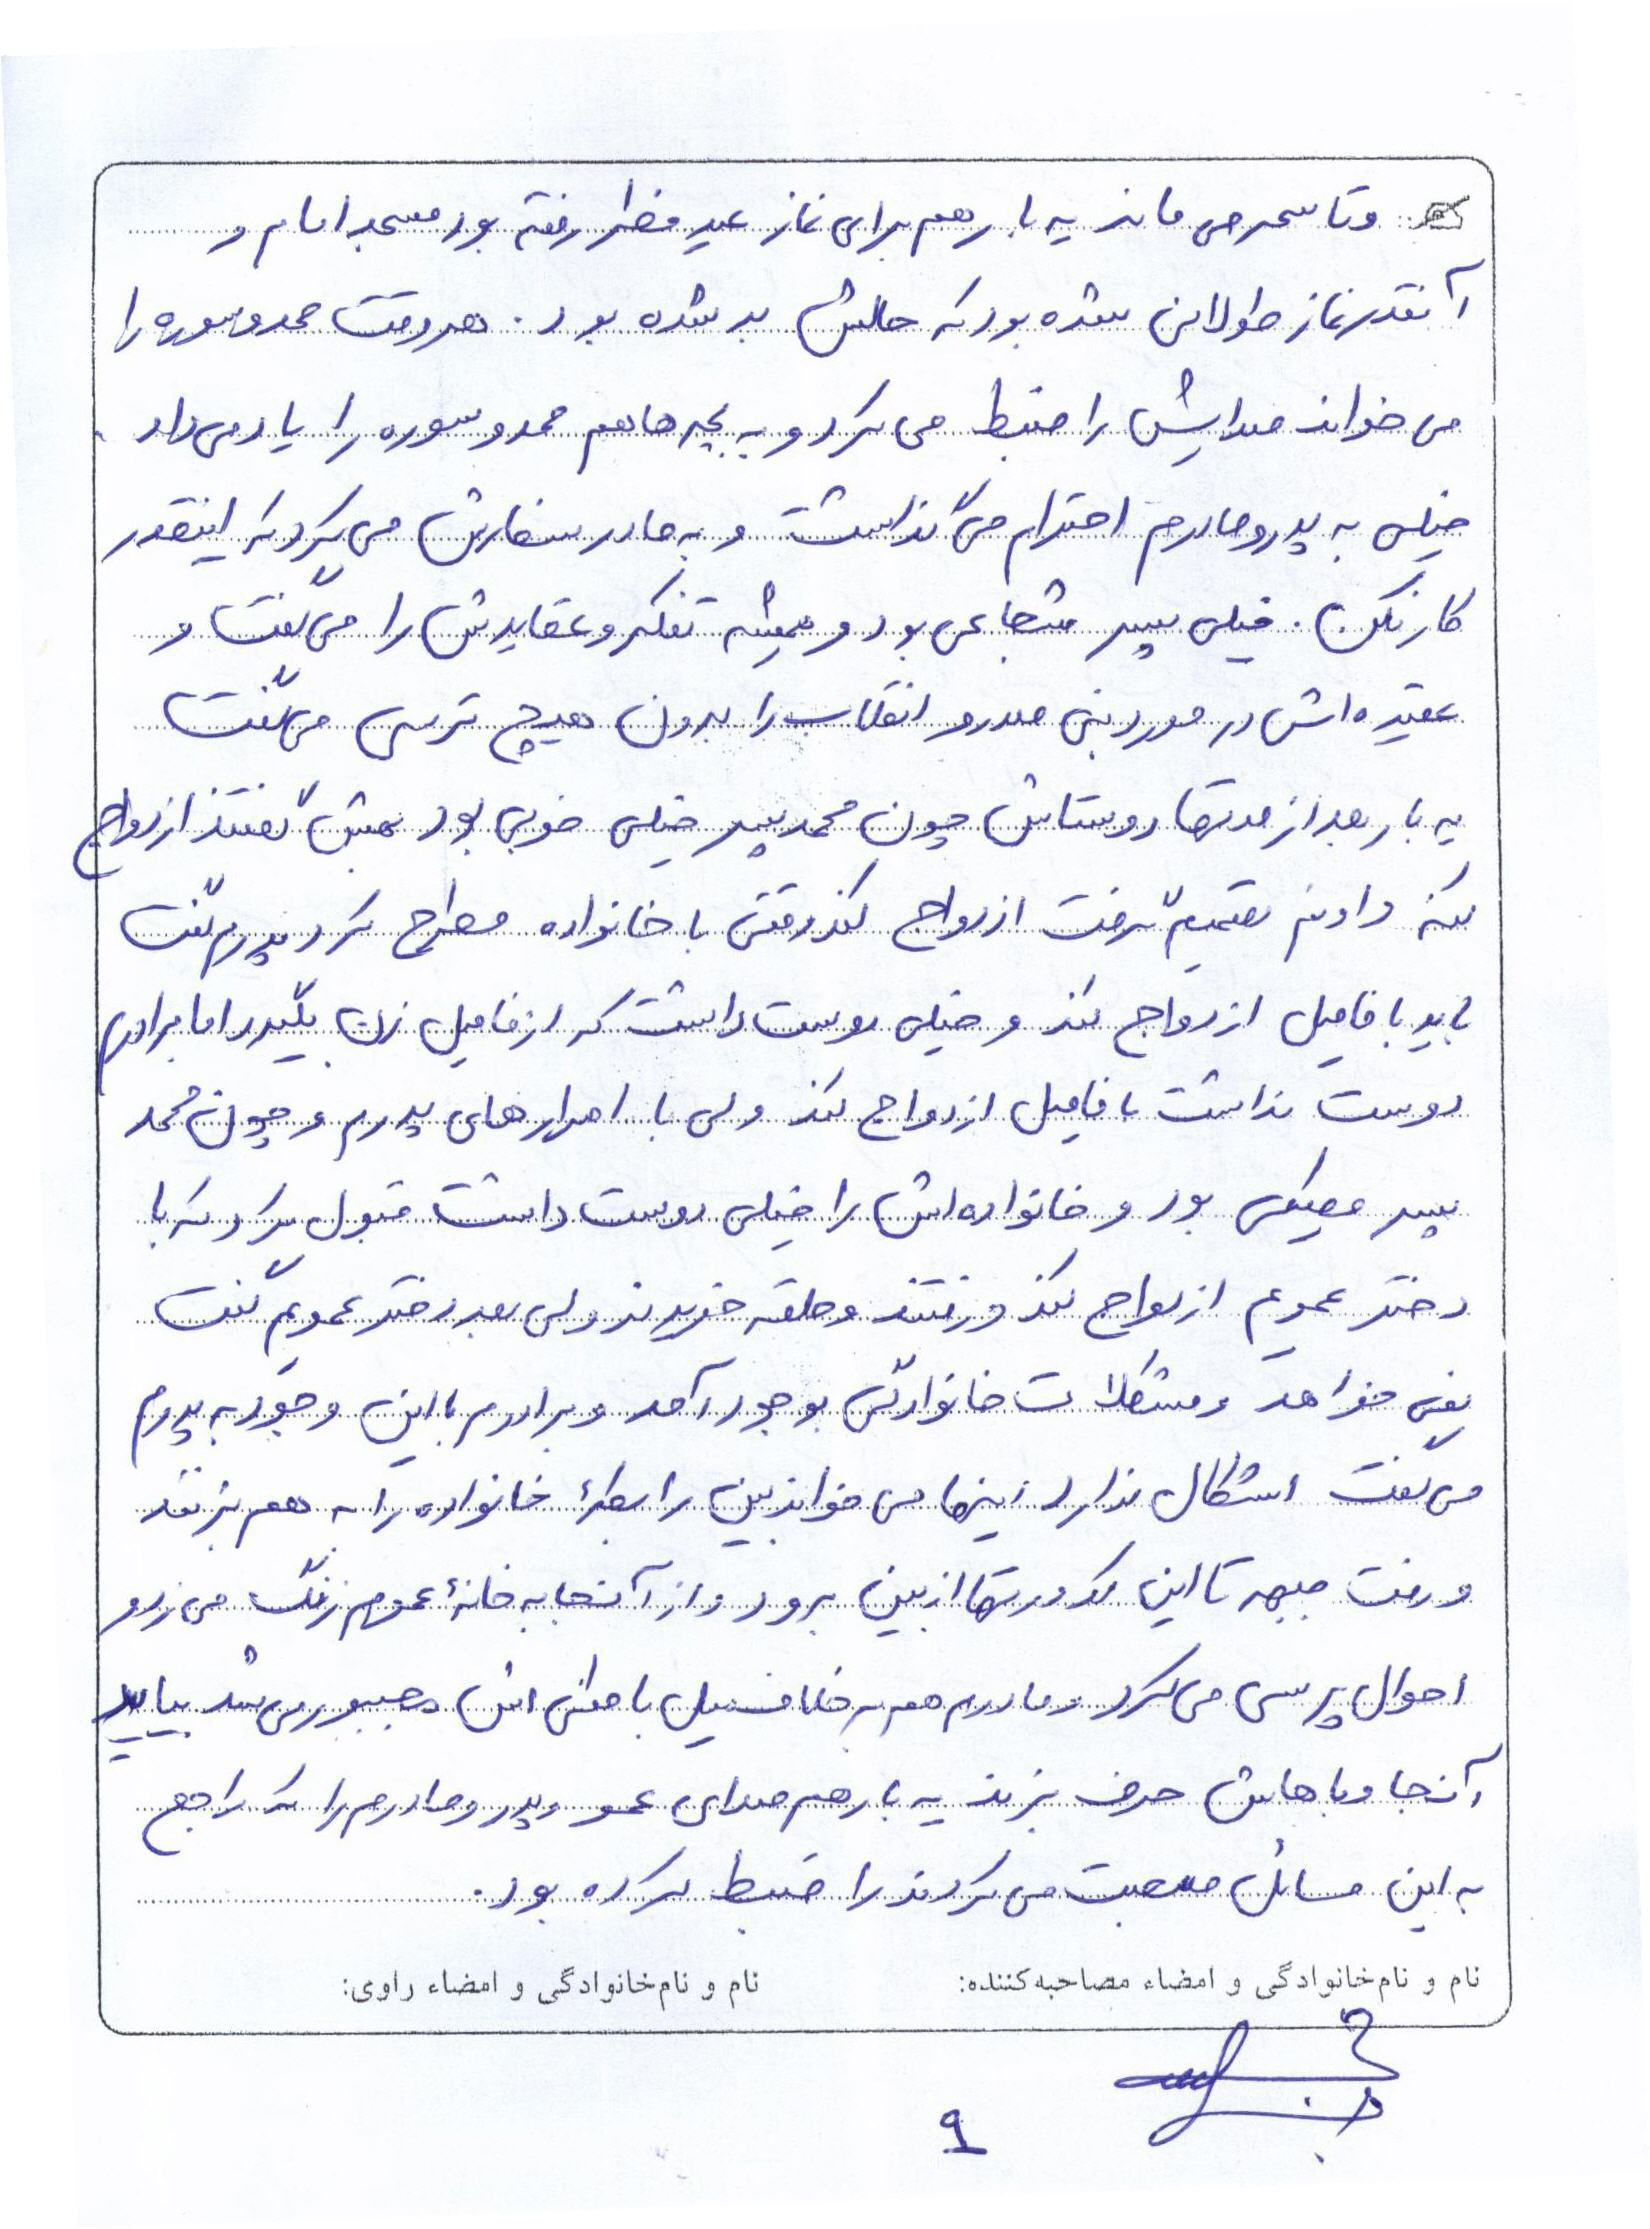 و تا سحر می ماند یه بار هم برای نماز عید فطر رفته بود مسجد امام و
آنقدر نماز طولانی شده بود که حالش بد شده بود. هر وقت حمد و سوره را
می خواند صدایش را ضبط می کرد و به بچه ها هم حمد و سوره را یاد می داد.
خیلی به پدر و مادرم احترام می گذاشت و به مادر سفارش می کرد که اینقدر
کار نکن. خیلی پسر شجاعی بود و همیشه تفکر و عقایدش را می گفت و
عقیده اش در مورد بنی صدر و انقلاب را بدون هیچ ترسی می گفت
یه بار بعد از مدتها دوستاش چون محمد پسر خیلی خوبی بود بهش گفتند ازدواج
کنه و اونم تصمیم گرفت ازدواج کند وقتی با خانواده مطرح کرد پدرم گفت
باید با فامیل ازدواج کند و خیلی دوست داشت که از فامیل زن بگیرد اما برادرم
دوست نداشت با فامیل ازدواج کند ولی با اصرارهای پدرم و چون محمد
پسر مطیعی بود و خانواده اش را خیلی دوست داشت قبول کرد که با
دختر عمویم ازدواج کند و رفتند و حلقه خریدند ولی بعد دختر عمویم گفت
نمی خواهد و مشکلات خانوادگی بوجود آمد و برادرم با این وجود به پدرم
می گفت اشکال نداره اینها می خواند بین رابطۀ خانواده را به هم بزنند
و رفت جبهه تا این کدورتها از بین برود و از آنجا به خانۀ عمویم زنگ می زد و
احوال پرسی می کرد و مادرم هم بر خلاف میل باطنی اش مجبور می شد بیاید
آنجا و باهاش حرف بزند یه بار هم صدای عمو و پدر و مادرم را که راجع
به این مسائل صحبت می کردند را ضبط کرده بود.
نام و نام خانوادگی و امضاء مصاحبه کننده:
نام و نام خانوادگی و امضاء راوی:
۹